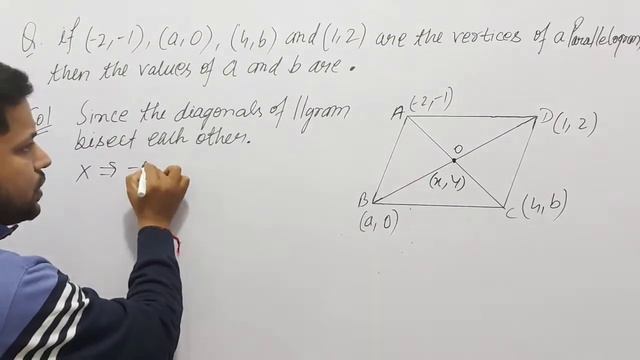 Q. if (-2,-1), (a,0), (4,b) and (1,2) are the vertices of a Parallelogram,
then the values of a and b are.
Sol Since the diagonals of ||gram
bisect each other.
x ⇒ -
A (-2,-1)
D (1,2)
O
(x,y)
B
(a,0)
C (4,b)